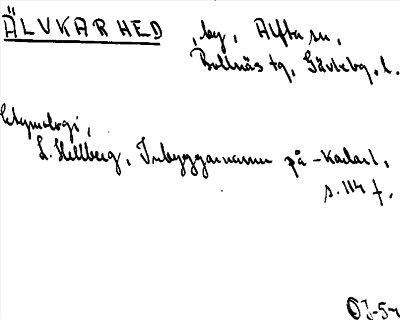 ÄLVKARHED , by, Alfta sn,
Bollnäs tg, Gävlebg. l.
Etymologi,
L. Hellberg, Inbyggarnamn på -karlar,
s. 114 f.